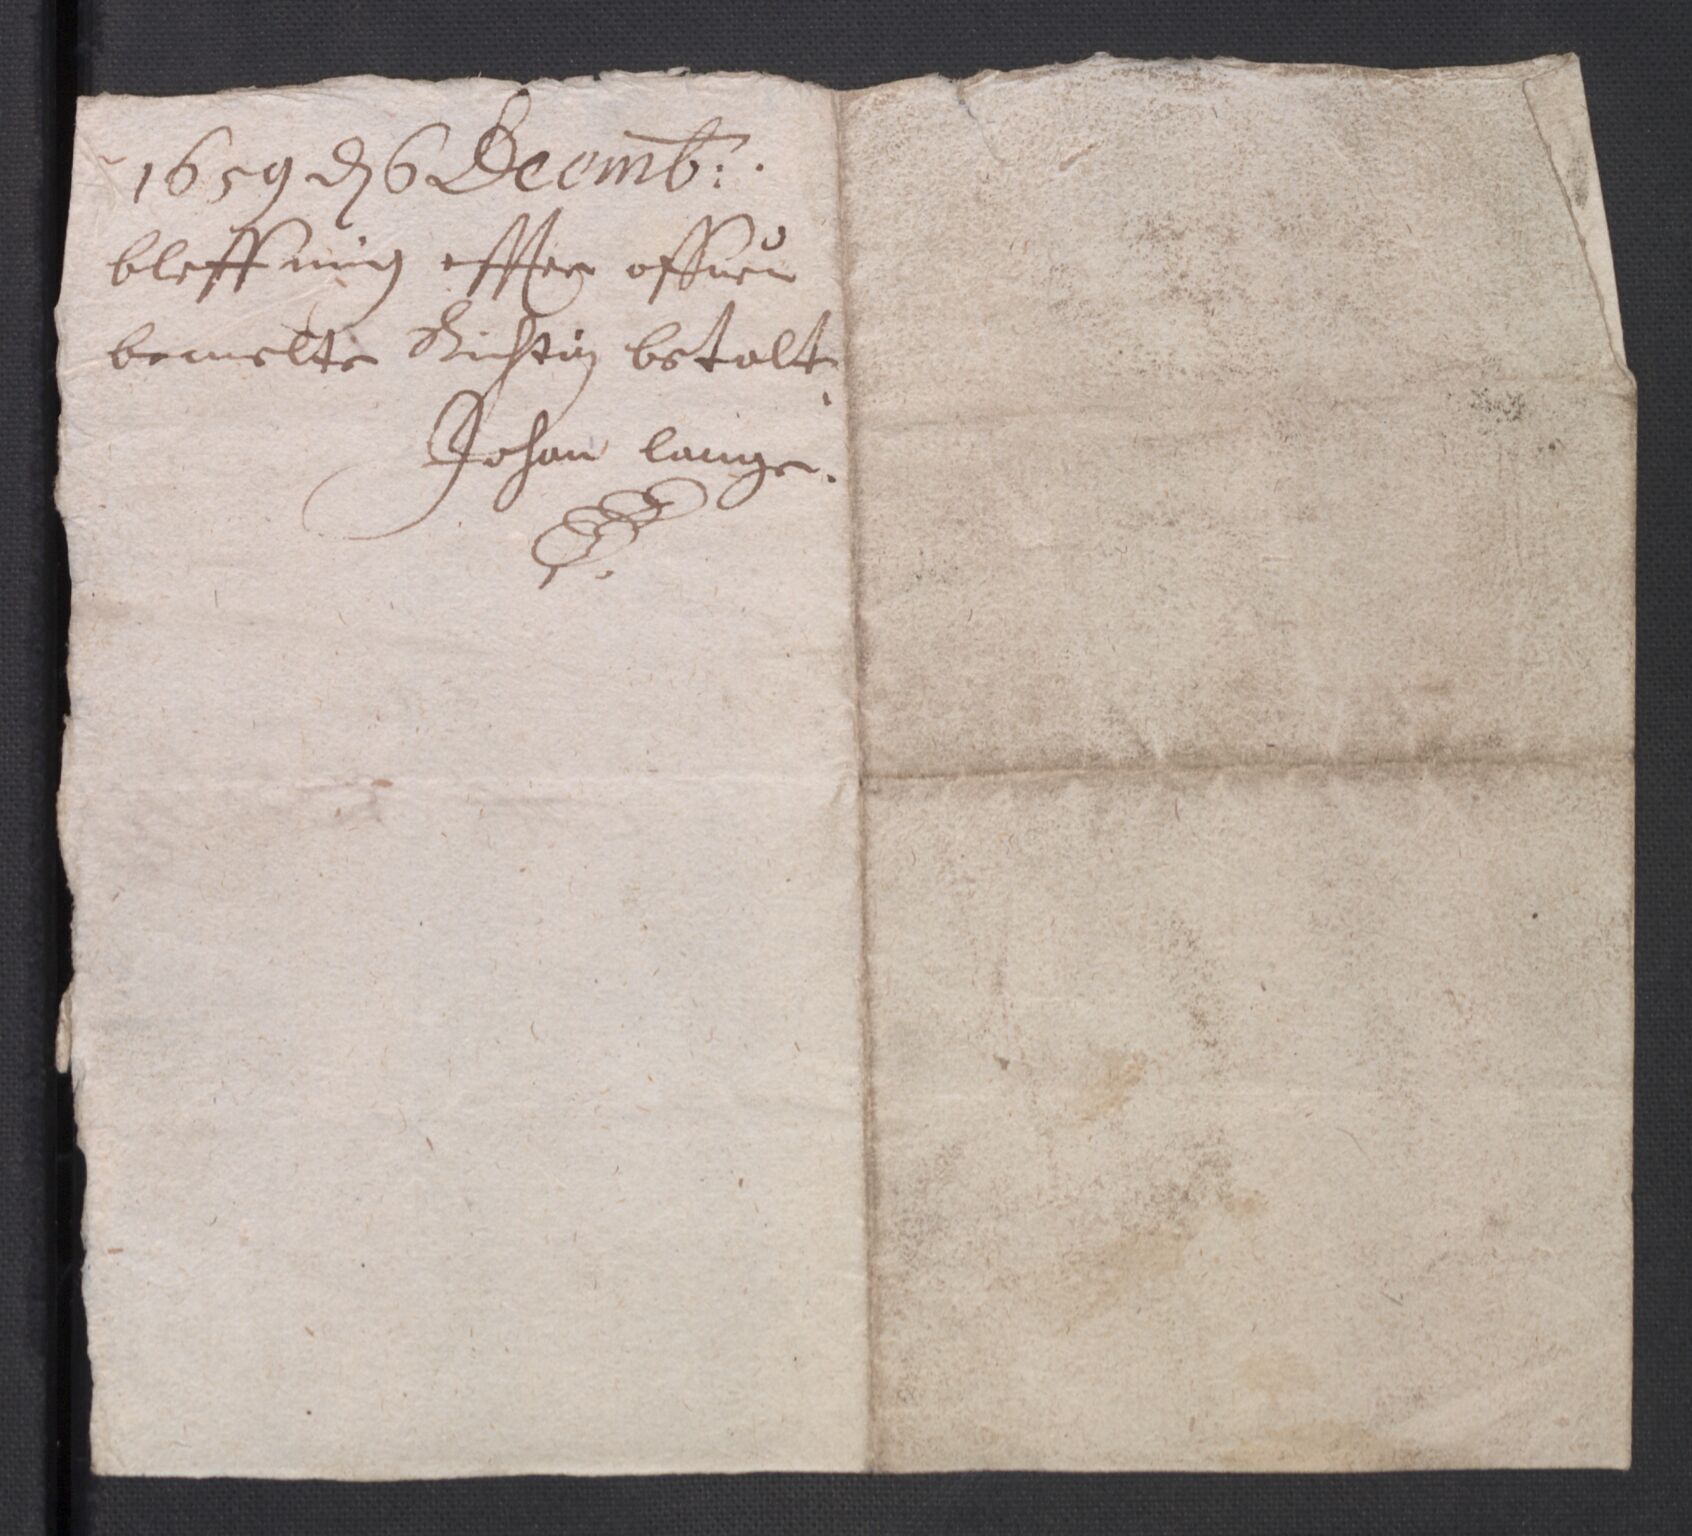 1659 d 6 Decemb:.
bleff mig effter offuen
bemelte Richtig betalt.
Johan lange.